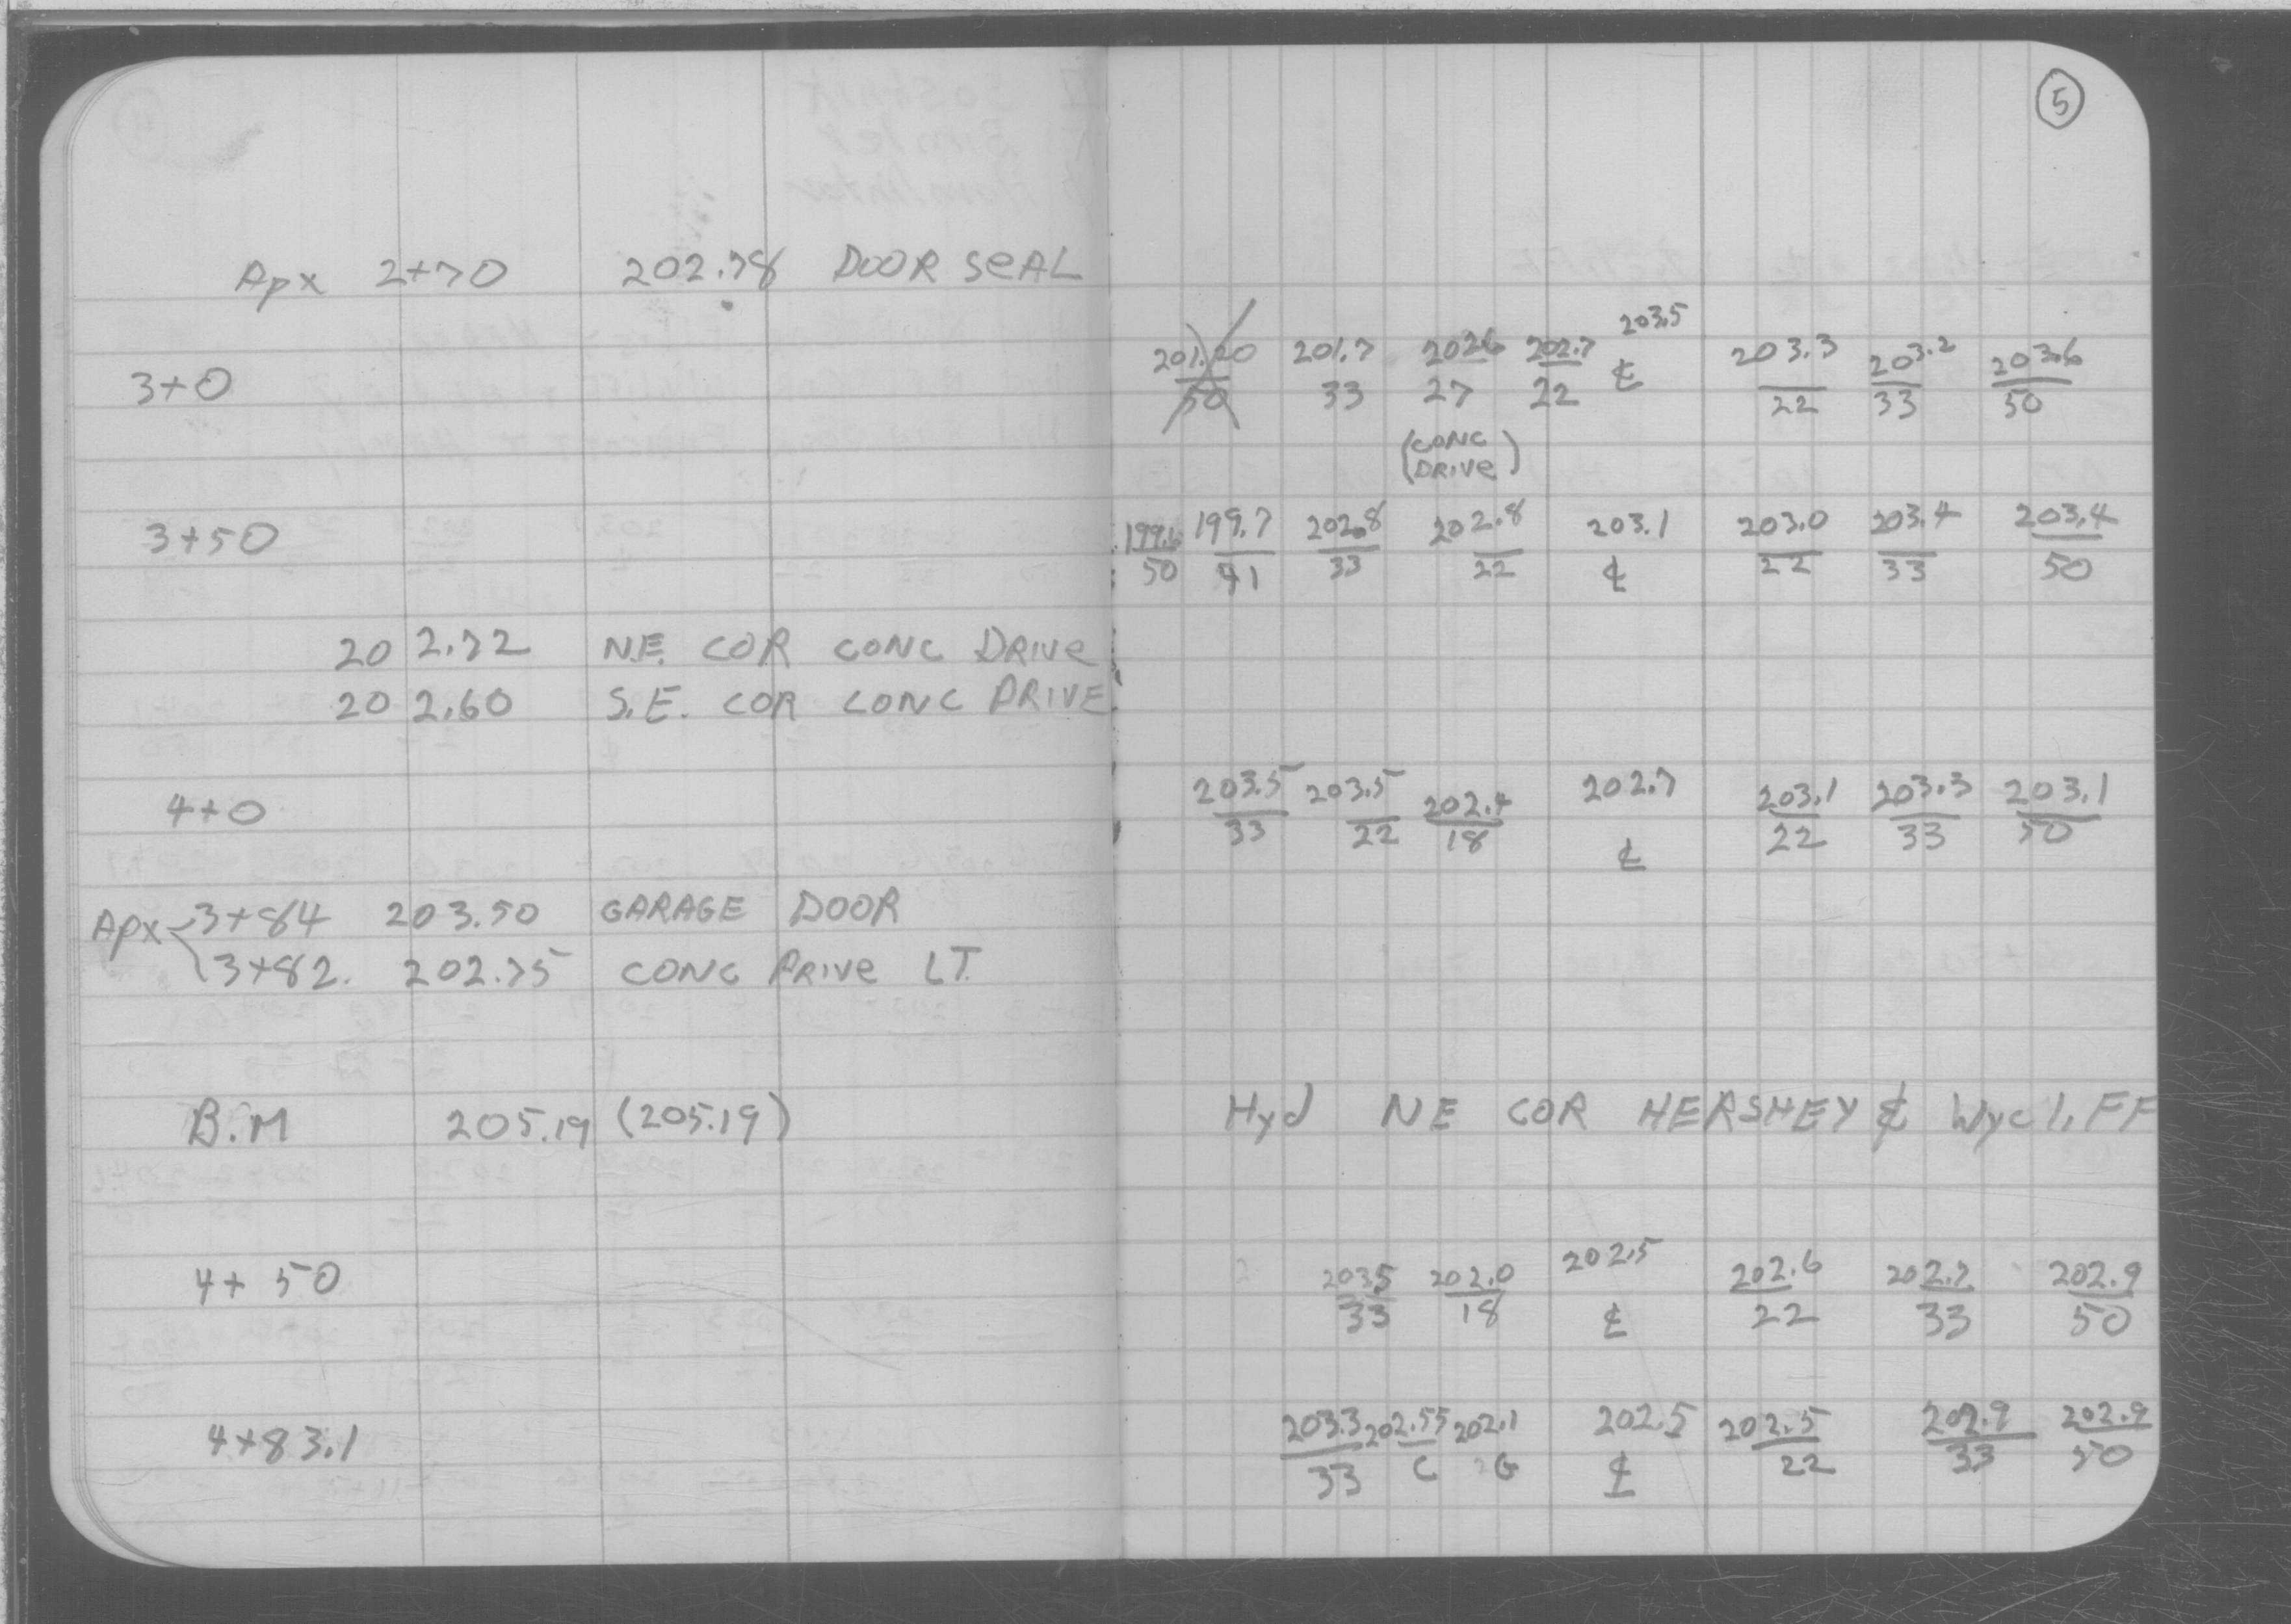 5
Apx 2+70 202.78 DOOR SEAL
203.5
201.20 201.7 202.6 202.7 203.3 203.2 203.6
3+0 50 33 27 22 ℄ 22 33 50
(CONC DRIVE)
199.6 199.7 202.8 202.8 203.1 203.0 203.4 203.4
3+50 50 41 33 22 ℄ 22 33 50
202.72 N.E. COR CONC DRIVE
202.60 S.E. COR CONC DRIVE
203.5 203.5 202.4 202.7 203.1 203.3 203.1
4+0 33 22 18 ℄ 22 33 50
Apx 3+84 203.50 GARAGE DOOR
3+82. 202.75 CONC DRIVE LT.
B.M 205.19 (205.19) Hyd NE COR HERSHEY & WycliFF
203.5 202.0 202.5 202.6 202.7 202.9
4+50 33 18 ℄ 22 33 50
203.3 202.55 202.1 202.5 202.5 202.9 202.9
4+83.1 33 C G ℄ 22 33 50